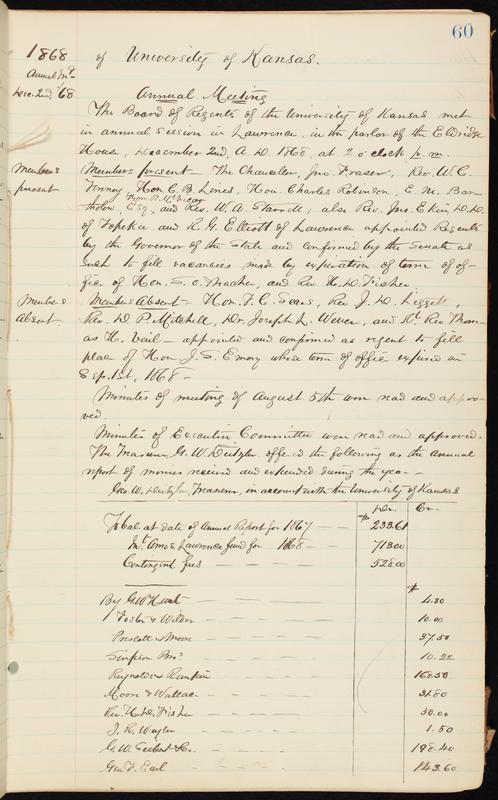 60
1868 of University of Kansas.
Annual Mt
Dec. 2nd, '68
Annual Meeting
The Board of Regents of the University of Kansas met
in annual session in Lawrence, in the parlor of the Eldridge
House, December 2nd, A.D. 1868, at 2 o'clock p.m.
Members present
Members present – The Chancellor, Jno. Fraser, Rev. W. C.
Tenney, Hon. C. B. Lines, Hon. Charles Robinson, E. M. Bar-
Hon.
tholow, Esq., and Rev. W. A. Starrett; also Rev. Jno. Ekin D.D.
of Topeka and R. G. Elliott of Lawrence appointed Regents
by the Governor of the State and confirmed by the Senate as
such to fill vacancies made by expiration of term of of-
fice of Hon. S. O. Thacher, and Rev. H. D. Fisher.
Members Absent
Members Absent – Hon. T. C. Sears, Rev. J. D. Liggett,
Rev. D. P. Mitchell, Dr. Joseph L. Wever, and Rt. Rev. Thom-
as H. Vail – appointed and confirmed as regent to fill
place of Hon J. S. Emery whose term of office expired on
Sep. 1st, 1868 –
Minutes of meeting of August 5th were read and appro-
ved.
Minutes of Executive Committee were read and approved.
The Treasurer, G. W. Deitzler offered the following as the annual
report of monies received and expended during the year –
Geo. W. Deitzler, Treasurer, in account with the University of Kansas
Dr. Cr.
To bal. at date of Annual Report for 1867 – – $ 233.61
Int. Amos Lawrence fund for 1868 – – 713.00
Contingent fees – – – – 528.00
$
By G. W. – – – – 4.30
Foster & Wilder – – – – 10.00
Prescott & Moon – – – – 37.50
Simpson Bros – – – – 10.22
Reynolds & Rankin – – – – 168.50
Moore & Wallace – – – – 31.80
Rev. H. D. Fisher – – – – 50.00
J. R. – – – – 1.50
G. W. & Co. – – – – 198.40
Geo. F. Earl – – – – 143.60